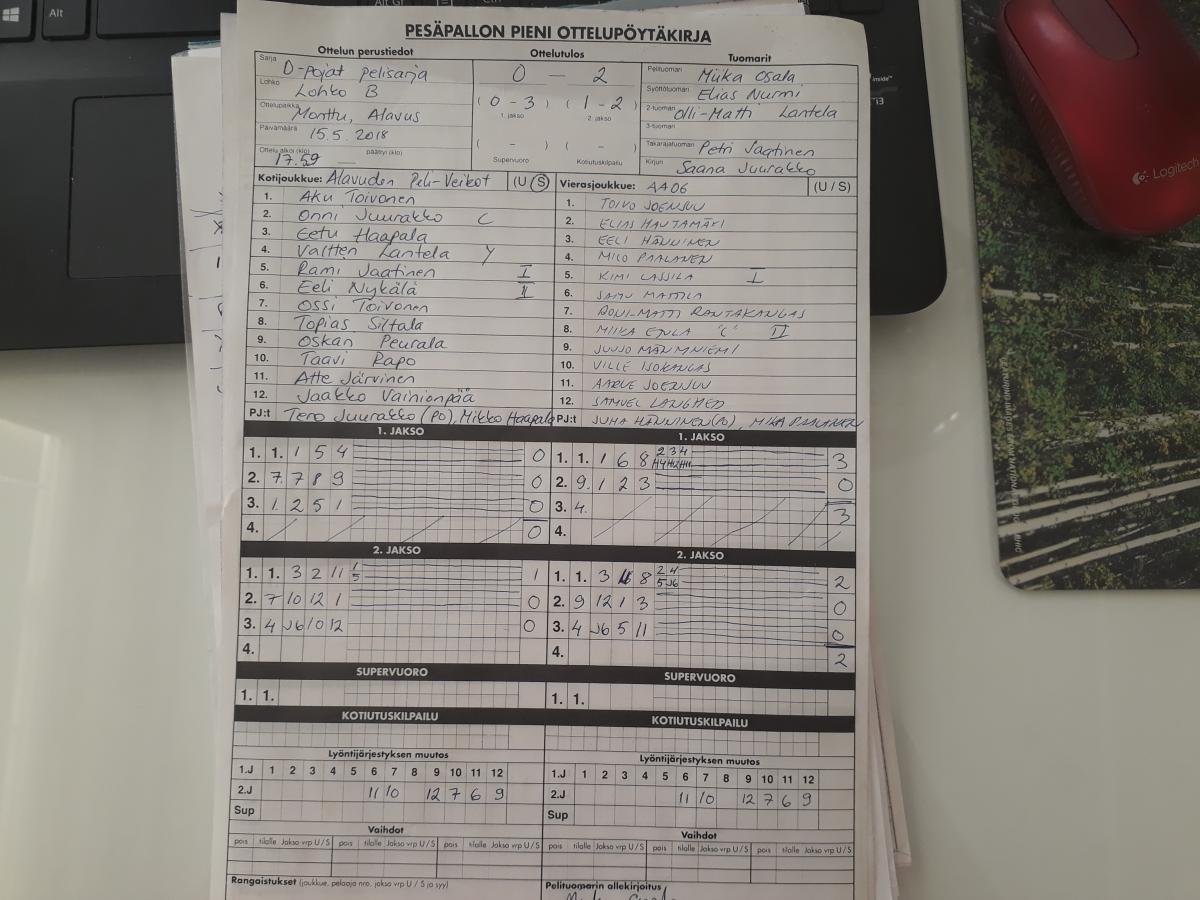 PESÄPALLON PIENI OTTELUPÖYTÄKIRJA
Ottelun perustiedot Ottelutulos Tuomarit
Sarja D-pojat pelisarja 0 - 2 Pelituomari Miika Osala
Lohko Lohko B Syöttötuomari Elias Nurmi
Ottelupaikka Monttu, Alavus ( 0 - 3 ) ( 1 - 2 ) 2-tuomari Olli-Matti Lantela
1. jakso 2. jakso
Päivämäärä 15.5.2018 3-tuomari
Ottelu alkoi (klo) 17.59 — päättyi (klo) ( - ) ( - ) Takarajatuomari Petri Jaatinen
Supervuoro Kotiutuskilpailu Kirjuri Saana Juurakko
Kotijoukkue: Alavuden Peli-Veikot (U/S) Vierasjoukkue: AA06 (U / S)
1. Aku Toivonen 1. TOIVO JOENSUU
2. Onni Juurakko C 2. ELIAS HAUTAMÄKI
3. Eetu Haapala 3. EELI HÄNNINEN
4. Valtteri Lantela Y 4. MICO PAALANEN
5. Rami Jaatinen I 5. KIMI LASSILA I
6. Eeli Nykälä II 6. SAMU MATTILA
7. Ossi Toivonen 7. RONI-MATTI RANTAKANGAS
8. Topias Siltala 8. MIIKA "C" II
9. Oskari Peurala 9.
10. Taavi Rapo 10. VILLE ISOKANGAS
11. Atte Järvinen 11. AARUE JOENSUU
12. Jaakko Vainionpää 12. SAMUEL
PJ:t Tero Juurakko (PO), Mikko Haapala PJ:t JUHA HÄNNINEN (PO), MIKA PAALANEN
1. JAKSO 1. JAKSO
1. 1. 1 5 4 0 1. 1. 1 6 8 2 3 4 3
2. 7. 7 8 9 0 2. 9. 1 2 3 0
3. 1. 2 5 1 0 3. 4. 3
4. 0 4.
2. JAKSO 2. JAKSO
1. 1. 3 2 11 1 5 1 1. 1. 3 8 2 4 5 J6 2
2. 7 10 12 1 0 2. 9 12 1 3 0
3. 4 J6 10 12 0 3. 4 J6 5 11 0
4. 4. 2
SUPERVUORO SUPERVUORO
1. 1. 1. 1.
KOTIUTUSKILPAILU KOTIUTUSKILPAILU
Lyöntijärjestyksen muutos Lyöntijärjestyksen muutos
1.J 1 2 3 4 5 6 7 8 9 10 11 12 1.J 1 2 3 4 5 6 7 8 9 10 11 12
2.J 11 10 12 7 6 9 2.J 11 10 12 7 6 9
Sup Sup
Vaihdot Vaihdot
pois tilalle Jakso vrp U / S pois tilalle Jakso vrp U / S pois tilalle Jakso vrp U / S pois tilalle Jakso vrp U / S pois tilalle Jakso vrp U / S pois tilalle Jakso vrp U / S
Rangaistukset (joukkue, pelaaja nro, jakso vrp U / S ja syy) Pelituomarin allekirjoitus
Alt
inside
i3
Logitech